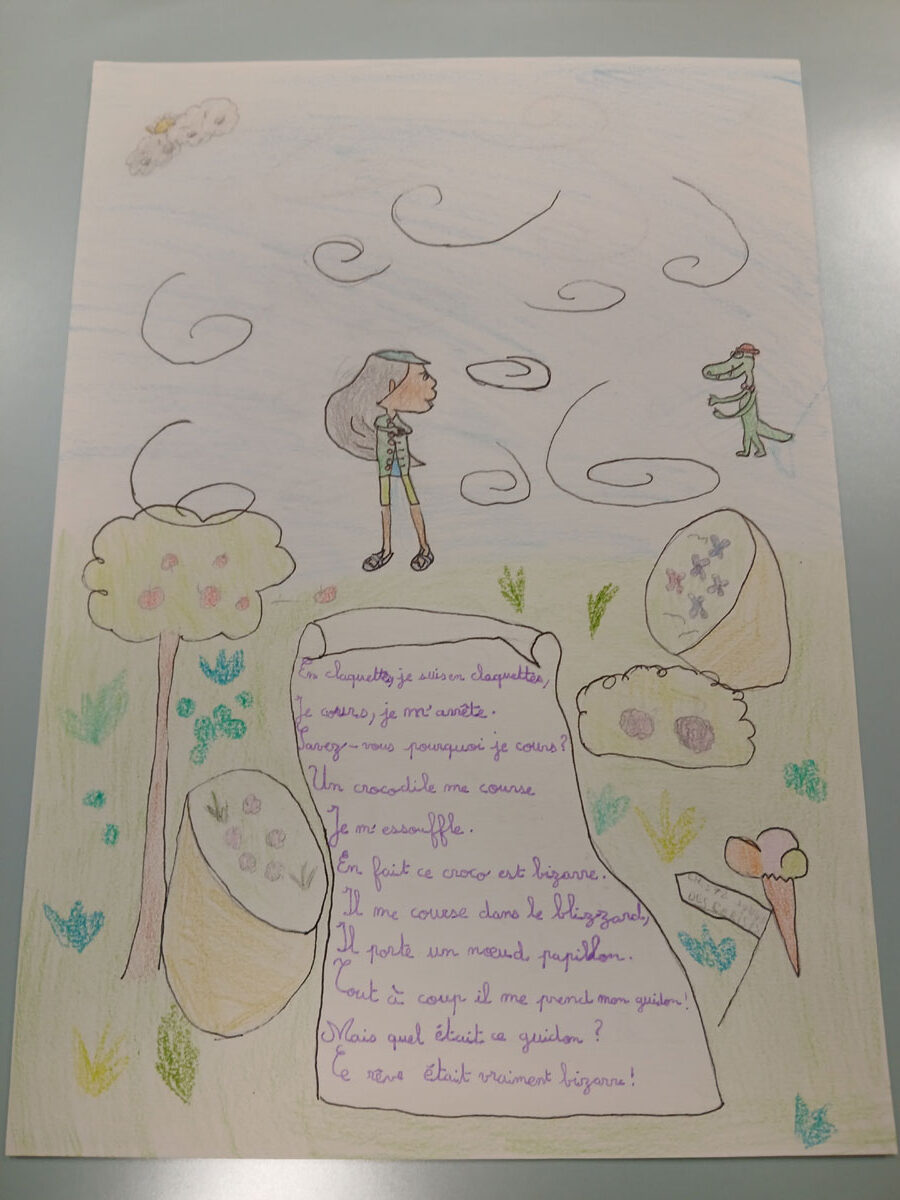 En claquettes, je suis en claquettes,
Je cours, je m'arrête.
Savez-vous pourquoi je cours?
Un crocodile me course
Je m'essouffle.
En fait ce croco est bizarre.
Il me course dans le blizzard,
Il porte un nœud papillon.
Tout à coup il me prend mon guidon!
Mais quel était ce guidon ?
Ce rêve était vraiment bizarre!
DES